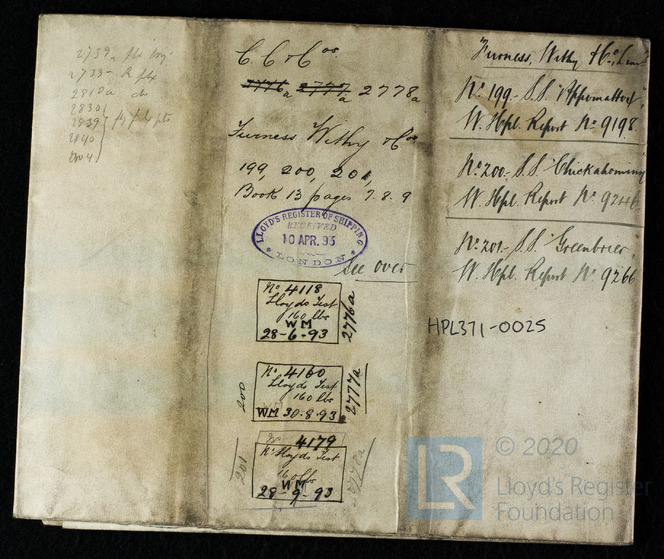 2739a
2733
2818a do
2830
2839
2840
C. C. & Cos
2776a 2777a 2778a
Furness Withy & Co
199, 200, 201,
Book 13 pages 7. 8. 9
LLOYD'S REGISTER OF SHIPPING
RECEIVED
10 APR. 93
LONDON
See over
No 4118
Lloyds Test
160 lbs
WM
28-6-93
2776a
200
No 4160
Lloyds Test
160 lbs
WM 30.8.93
2777a
201
No 4179
Lloyds Test
160 lbs
WM
28-9-93
2778a
Furness, Withy & Co, Lim
No 199- S.S. "Appomattox",
W. Hpl. Report No 9198
No 200- S.S. Chickahominy
W. Hpl. Report No 9246
No 201- S.S. Greenbrier,
W. Hpl. Report No 9266
HPL371-0025
LR
© 2020
Lloyd's Register
Foundation